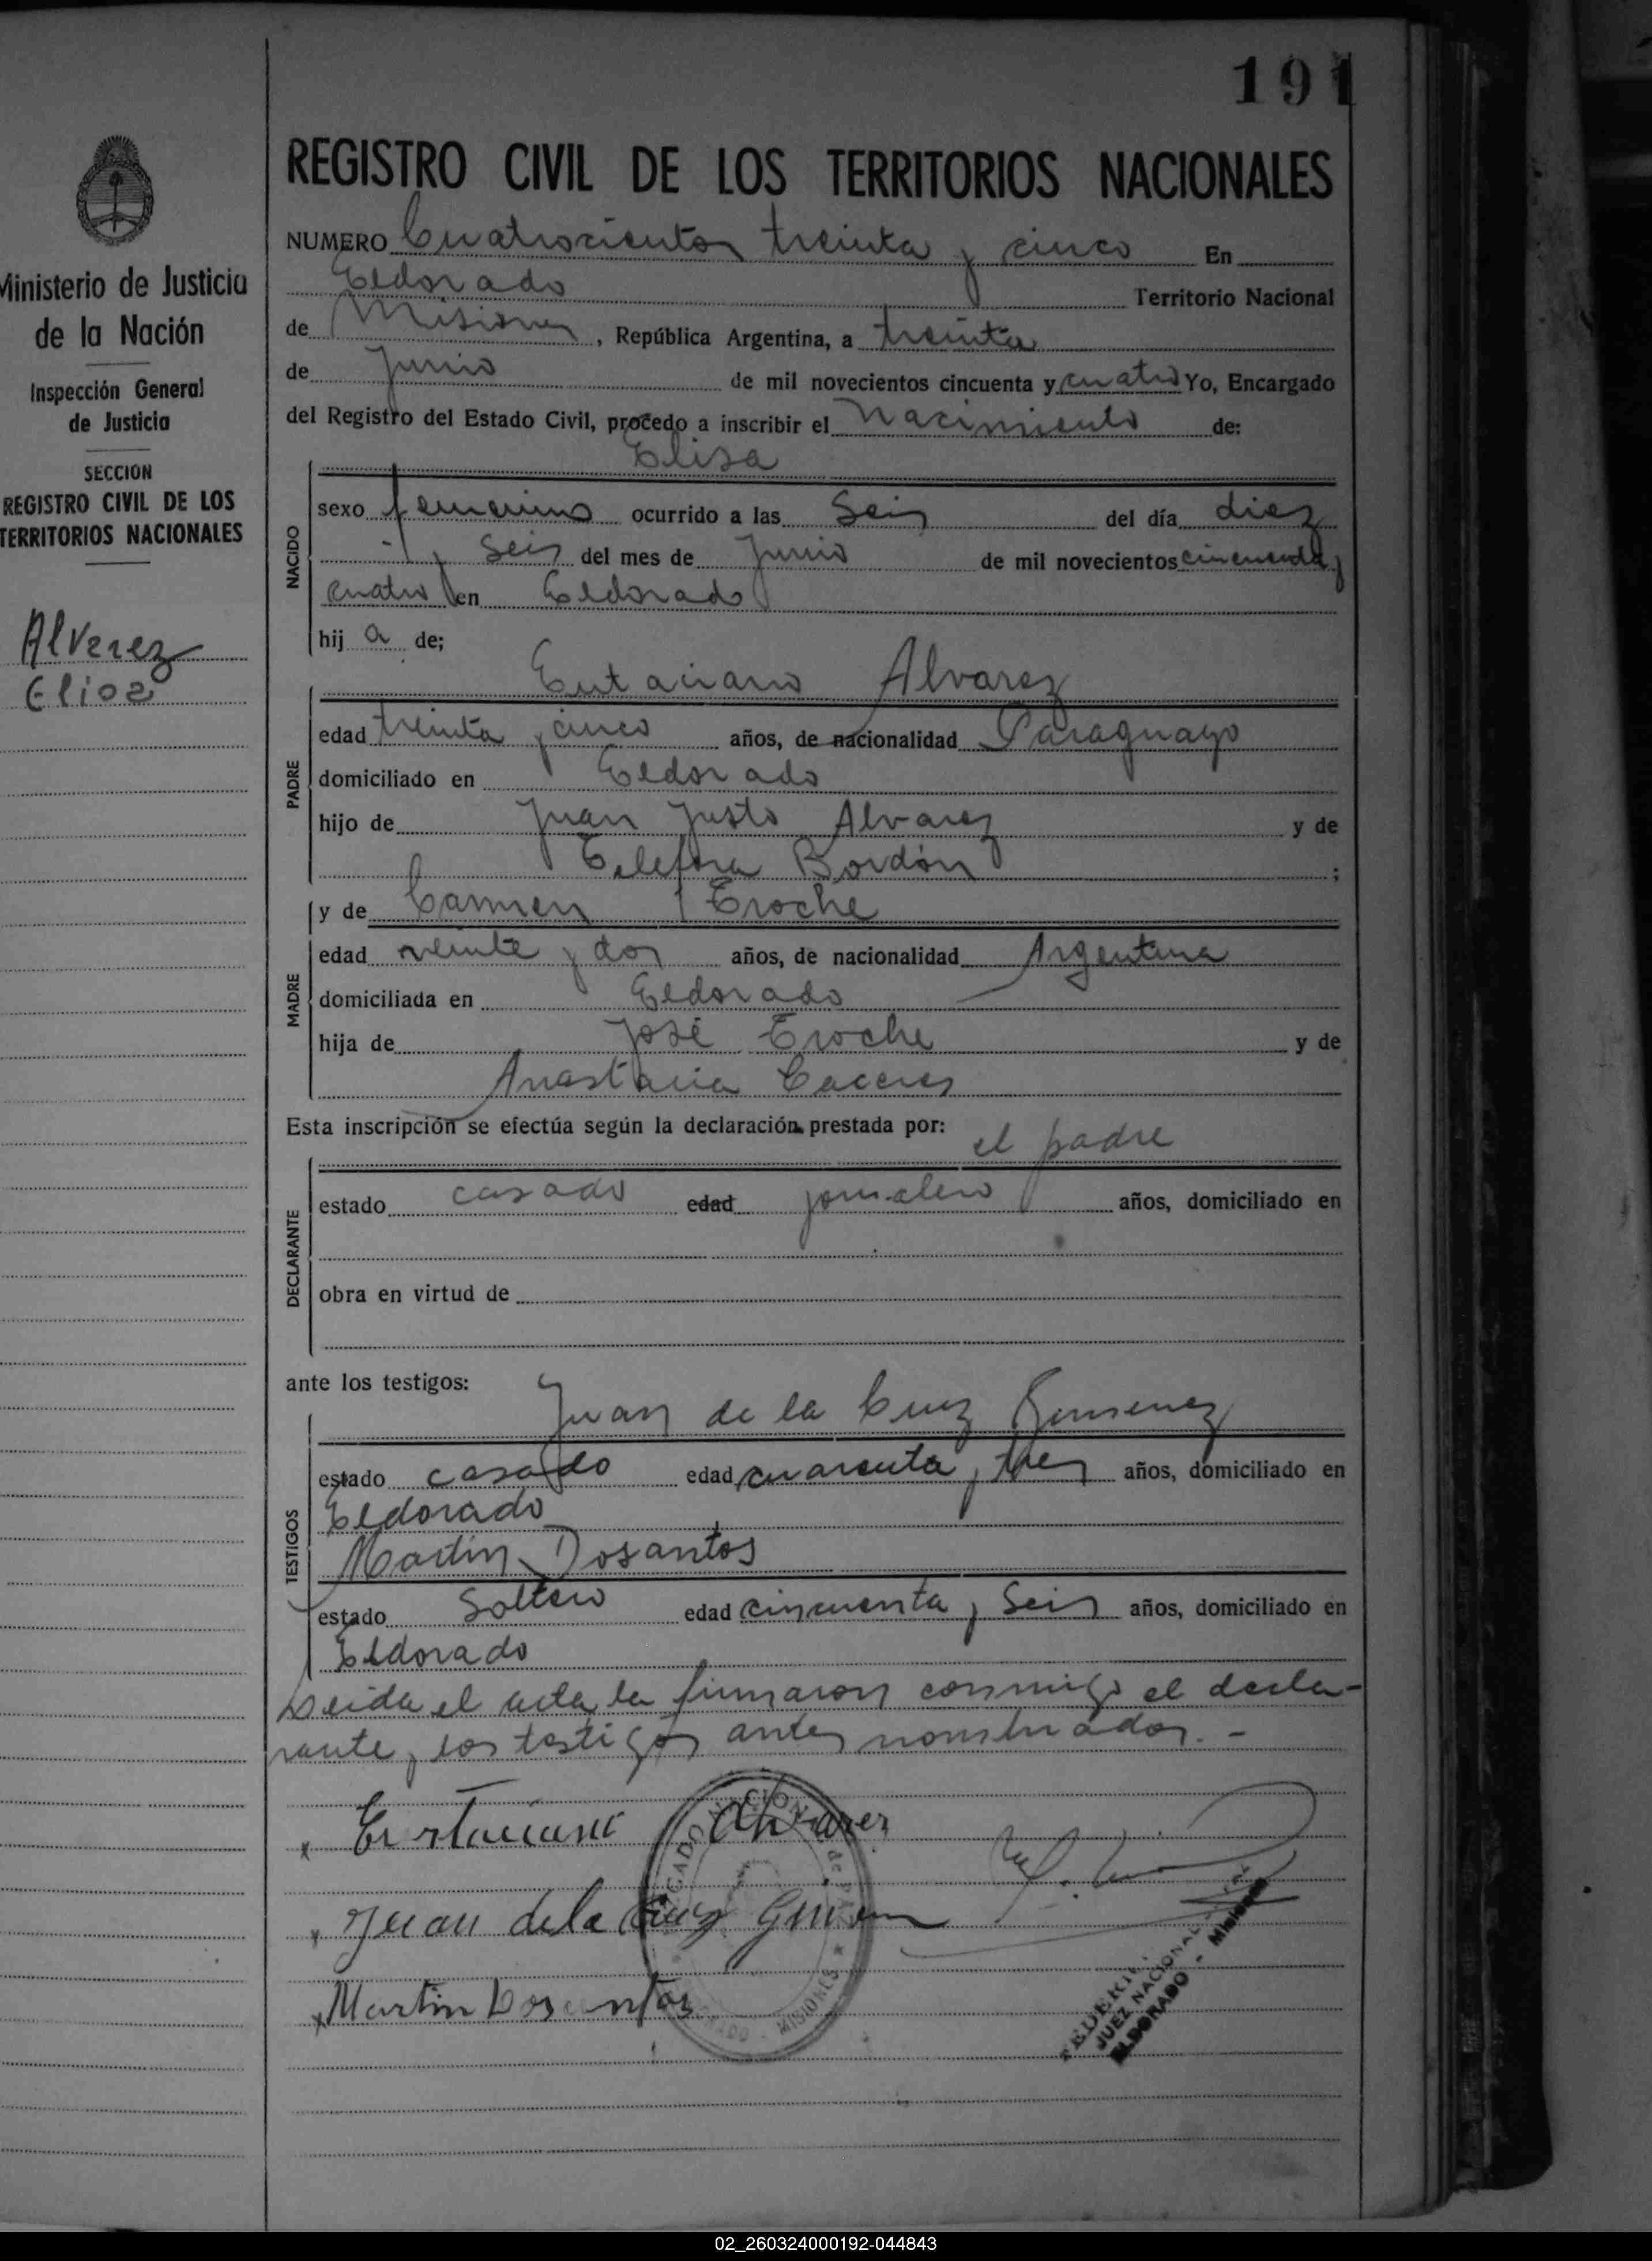 191
Ministerio de Justicia
de la Nación
Inspección General
de Justicia
SECCION
REGISTRO CIVIL DE LOS
TERRITORIOS NACIONALES
Alverez
Elisa
REGISTRO CIVIL DE LOS TERRITORIOS NACIONALES
NUMERO Cuatrocientos treinta y cinco En
Eldorado Territorio Nacional
de Misiones, República Argentina, a treinta
de Junio de mil novecientos cincuenta y cuatro Yo, Encargado
del Registro del Estado Civil, procedo a inscribir el nacimiento de:
Elisa
NACIDO
sexo femenino ocurrido a las Seis del día diez
y Seis del mes de Junio de mil novecientos cincuenta y
cuatro en Eldorado
hij a de;
Eutaciano Alvarez
PADRE
edad treinta y cinco años, de nacionalidad Paraguayo
domiciliado en Eldorado
hijo de Juan Justo Alvarez y de
Bordón ;
y de Carmen Troche
MADRE
edad veinte y dos años, de nacionalidad Argentina
domiciliada en Eldorado
hija de José Troche y de
Anastacia Caceres
Esta inscripción se efectúa según la declaración prestada por:
el padre
DECLARANTE
estado casado edad jornalero años, domiciliado en
obra en virtud de
ante los testigos:
Juan de la Cruz Gimenez
TESTIGOS
estado casado edad cuarenta y tres años, domiciliado en
Eldorado
Martin Dosantos
estado Soltero edad cincuenta y Seis años, domiciliado en
Eldorado
Leida el acta la firmaron conmigo el decla-
rante y los testigos antes nombrados.-
x Alvarez
x Juan de la Cruz
x Martin Dosantos
MISIONES
JUEZ NACIONAL
ELDORADO - Misiones
02_260324000192-044843